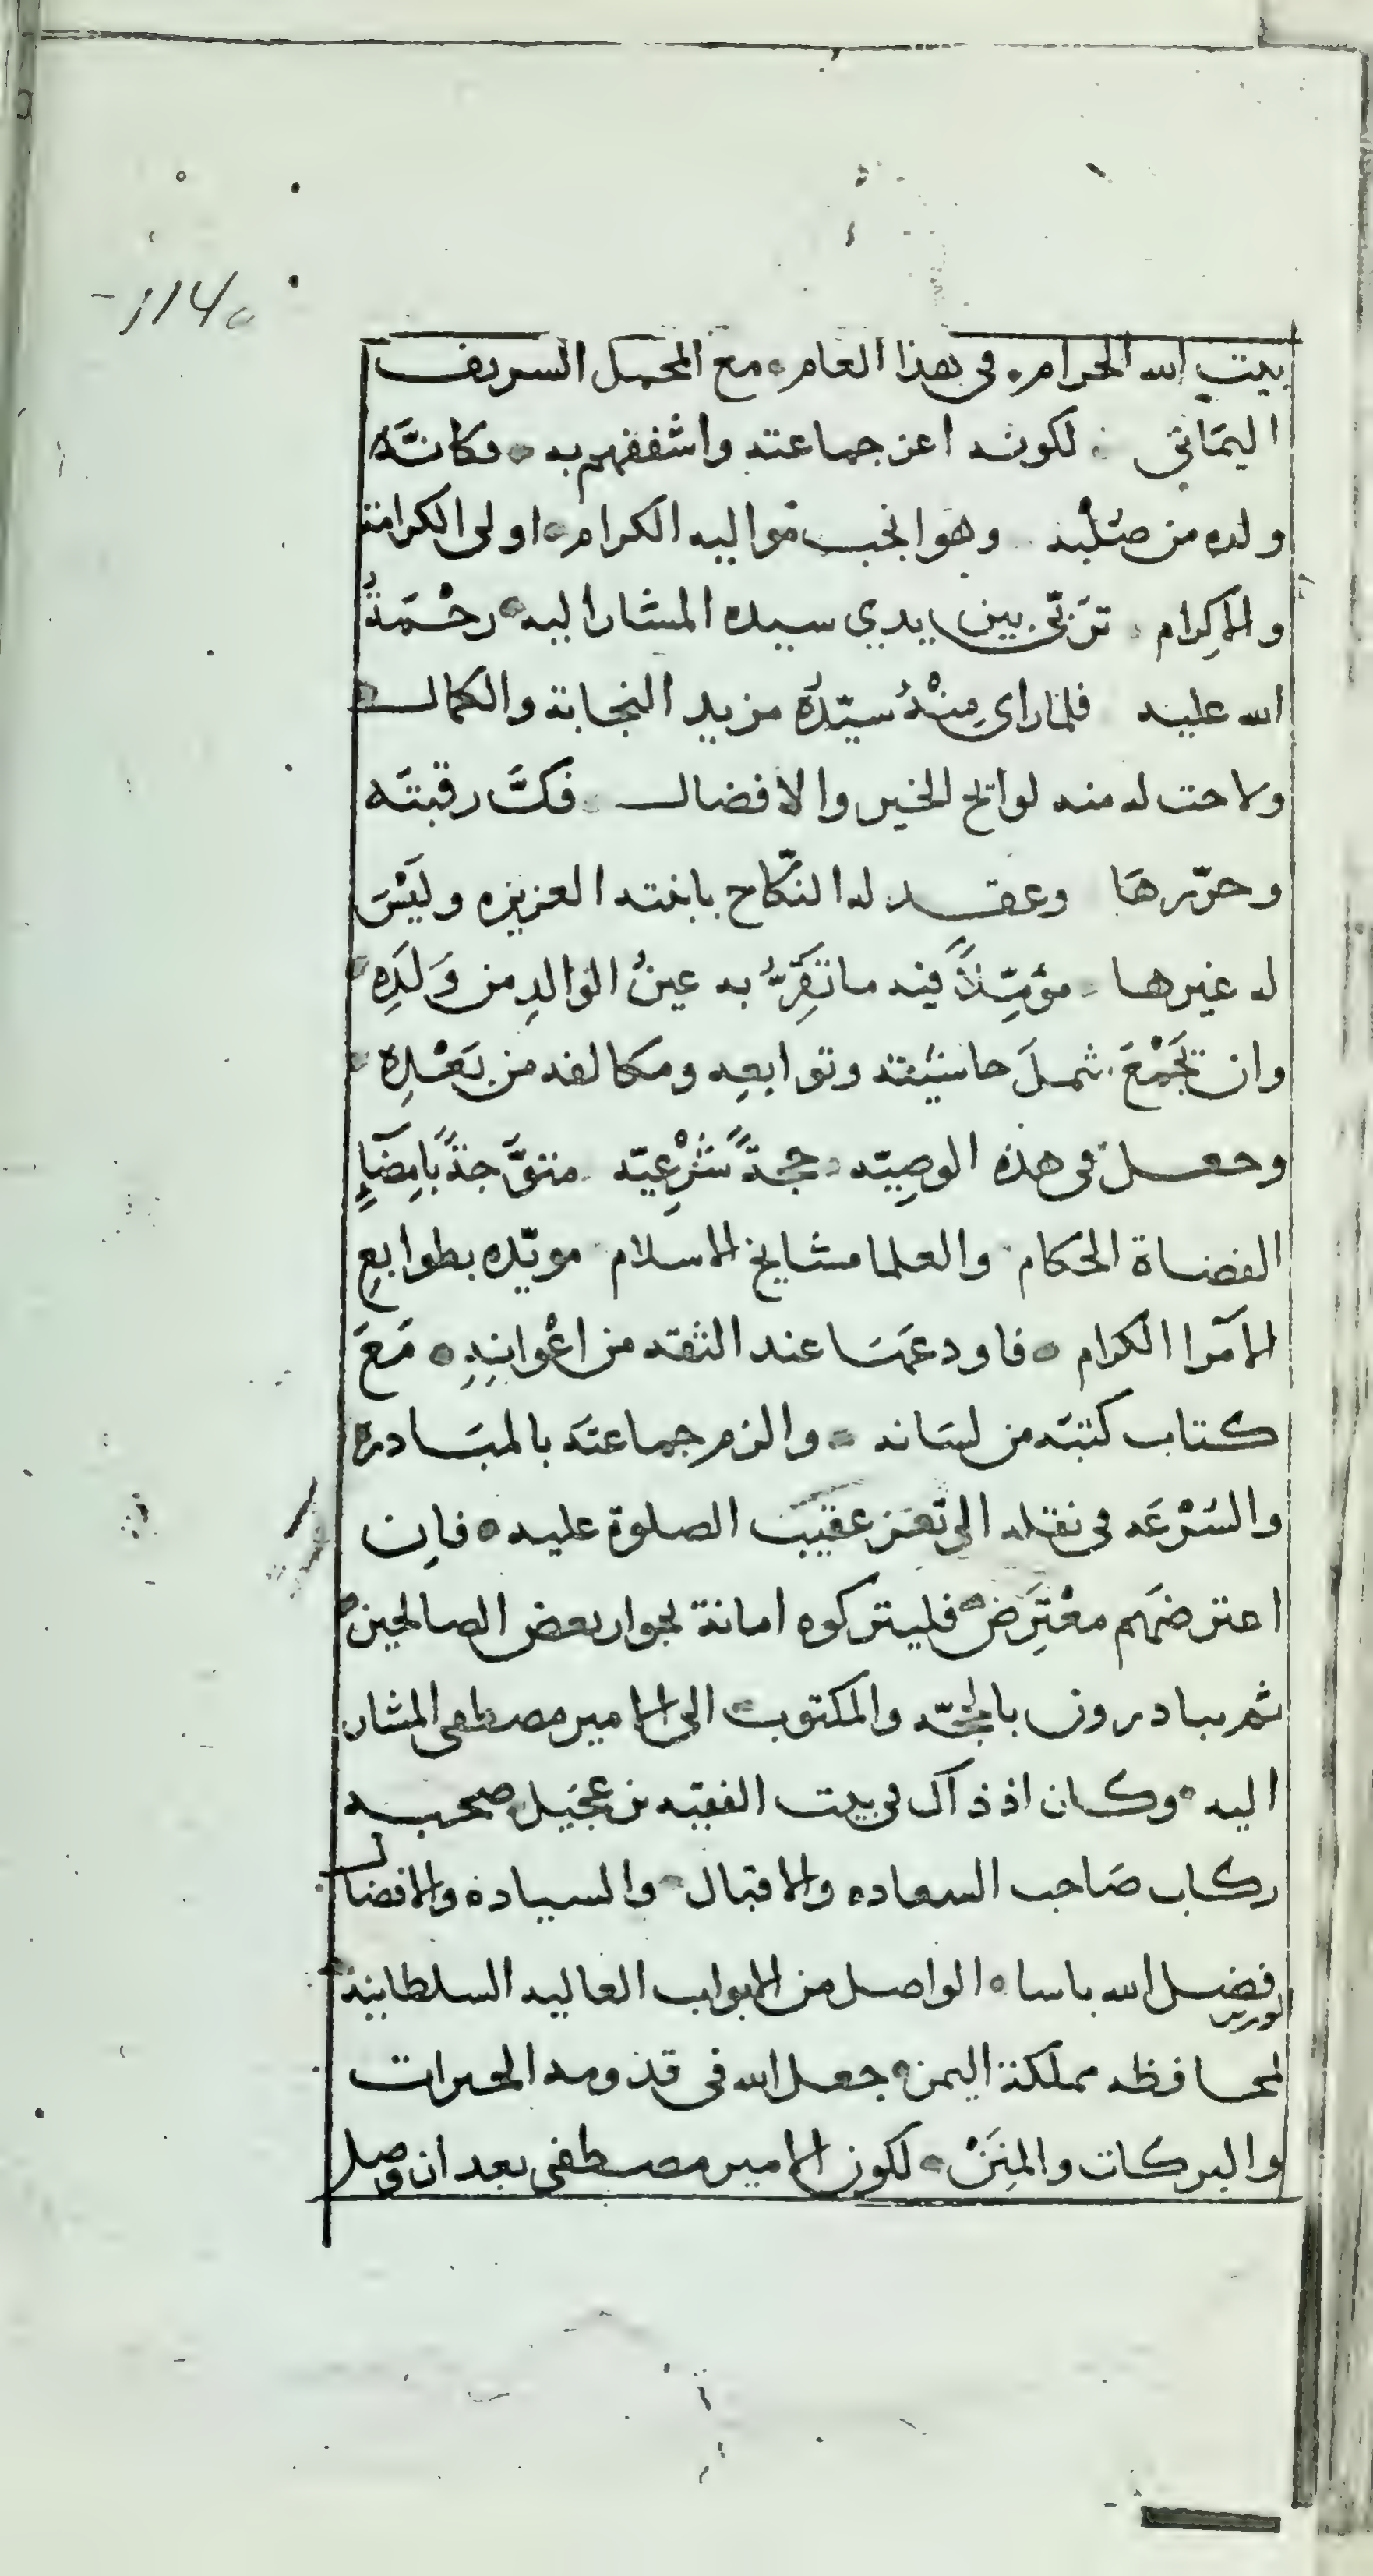 بيت الله الحرام في هذا العام مع المحمل السريف
اليماني لكونه اعز جماعته واشفقهم به وكانَّه
ولده من صُلْبه وهو انجب مواليه الكرام اولى الكرامة
والاكرام تَرَبَّى بين يدي سيده المشار اليه رحْمَةُ
الله عليه فلما راى مِنْهُ سيّدُه مزيد النجابة والكمال
ولاحت له منه لوايح الخير والافضال فكَّ رقبتَه
وحرّرها وعقد له النكّاح بابنته العزيزه وليْسَ
له غيرها مؤمِّلاً فيه ما تَقَرُّ به عينُ الوالدِ من وَلَدِه
وان تَجْمَعَ شملَ حاشيته وتوابعِه ومكالفه من بَعْدِه
وجعل في هذه الوصِيّه حجةً شَرْعِيّه متوَّجةً بامِضآءِ
القضاة الحكام والعلما مشايخ الاسلام مويّده بطوابعِ
الاُمرا الكرام فاودعَها عند الثقه من اعْوانِهِ مَعَ
كتاب كتبَه من لسَانه والزم جماعتَه بالمبَادره
والسُرْعَه في نقله الى تَعز عقيبَ الصلوة عليه فاِن
اعترضَهم معْتَرِض فليتركوه امانة بجوار بعض الصالحين
ثم يبادرون بالحجّه والمكتوب الى الامير مصطفى المشار
اليه وكان اذ ذاك في بيت الفقيه بن عجَيل صحبه
ركاب صَاحب السعاده والاقبال والسيادة والافضال
لوزير
فضل الله باسا الواصل من الابواب العاليه السلطانية
لمحافظه مملكة اليمن جعل الله في قدومه الخيرات
والبركات والمِنَنْ لكون الامير مصطفى بعد ان وصل